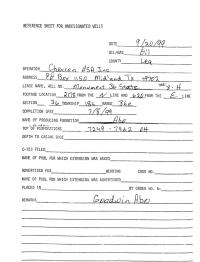 REFERENCE SHEET FOR UNDESIGNATED WELLS
DATE 9/20/99
OIL/GAS Oil
COUNTY Lea
OPERATOR Chevron USA Inc
ADDRESS PO Box 1150 Midland TX 79702
LEASE NAME, WELL NO. Monument 36 State 8-H
FOOTAGE LOCATION FROM THE N LINE AND FROM THE E LINE
SECTION 36 TOWNSHIP 18S RANGE 36E
COMPLETION DATE 7/8/99
NAME OF PRODUCING FORMATION Abo
TOP OF PERFORATIONS 7249 - 7562 OH
DEPTH TO CASING SHOE
C-123 FILED
NAME OF POOL FOR WHICH EXTENSION WAS ASKED
ADVERTISED FOR HEARING CODE NO.
NAME OF POOL FOR WHICH EXTENSION WAS ADVERTISED
PLACED IN BY ORDER NO. R-
REMARKS Goodwin Abo